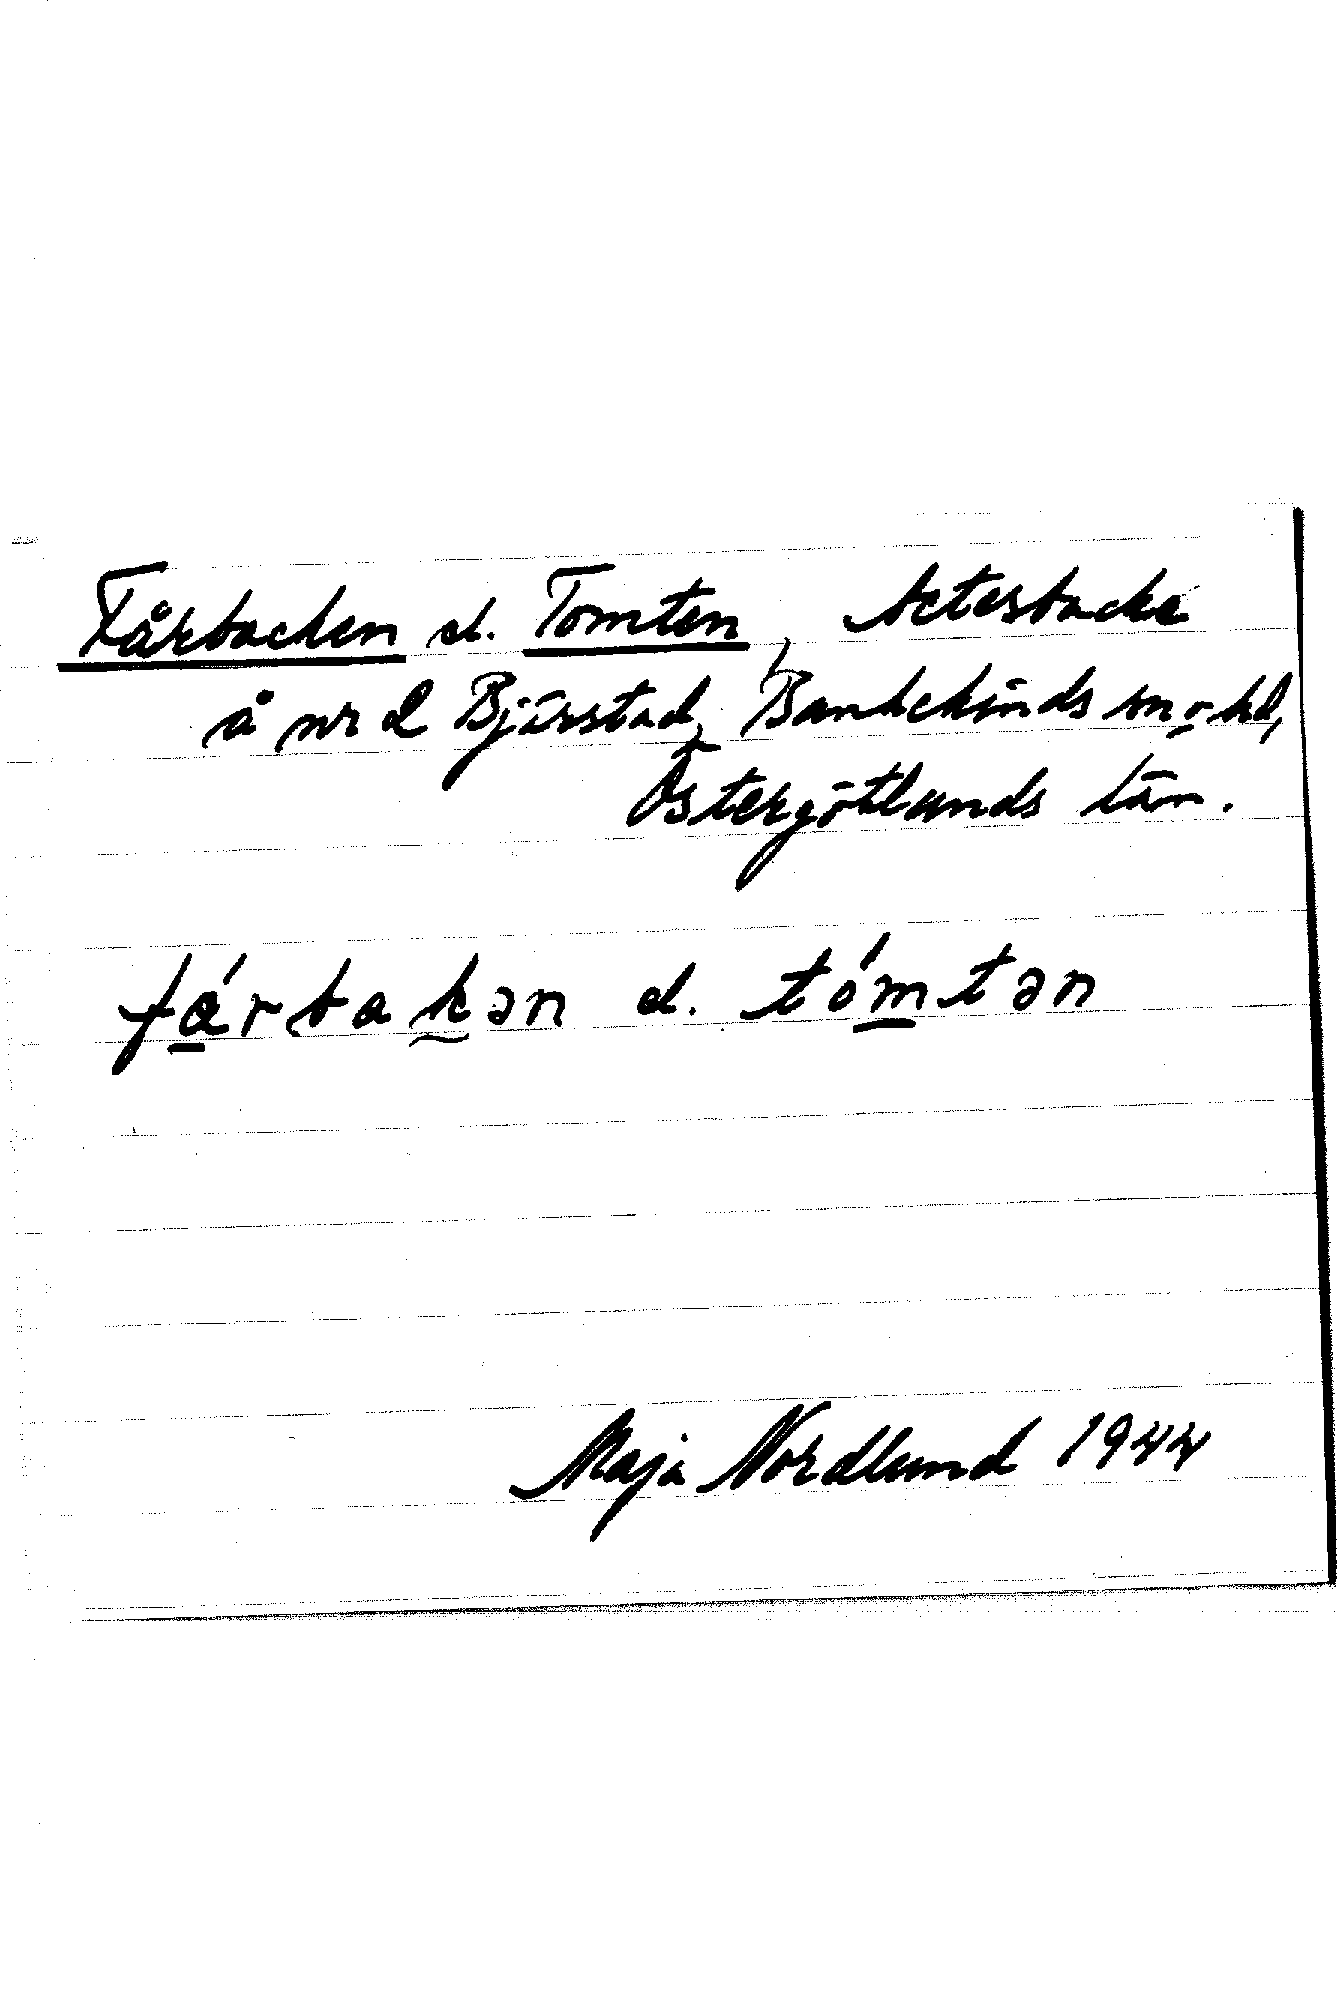 Fårbacken el. Tomten, betesbacke
å nr 2 Bjärstad, Bankekinds sn o. hd,
Östergötlands län.
fárbakən el. tómtən
Maja Nordlund 1944